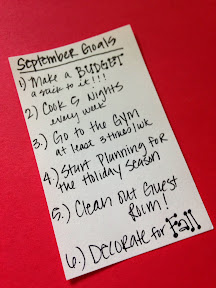 September Goals
1.) Make a BUDGET
& stick to it!!!
2.) Cook 5 Nights
every week
3.) Go to the Gym
at least 3 times/wk
4.) Start Planning for
the Holiday Season
5.) Clean out Guest
Room!
6.) DECORATE for Fall